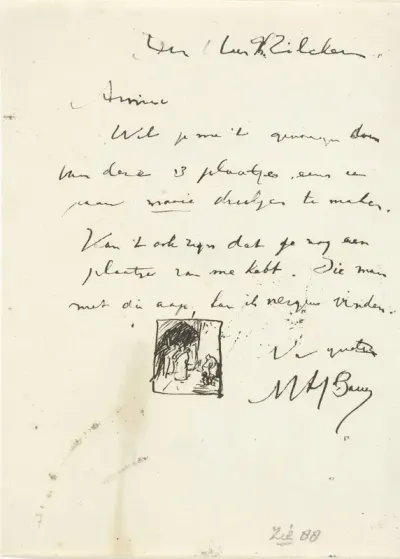 Den Heer Ph Zilcken
Amice
Wil je me 't genoegen doen
van deze 3 plaatjes eens een
paar mooie drukjes te maken.
Kan 't ook zijn dat je nog een
plaatje van me hebt. Die man
met die aap, kan ik nergens vinden.
MAJ Bauer
Zie 88